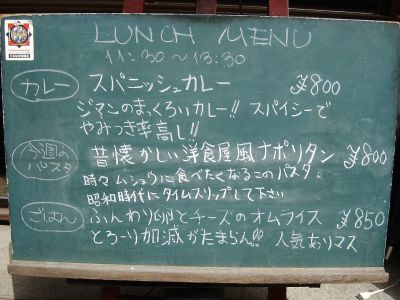 LUNCH MENU
11:30～13:30
カレー スパニッシュカレー ¥800
ジマンのまっくろいカレー!! スパイシーで
やみつき率高し!!
今週のパスタ 昔懐かしい洋食屋風ナポリタン ¥800
時々ムショウに食べたくなるこのパスタ!
昭和時代にタイムスリップして下さい
ごはん ふんわり卵とチーズのオムライス ¥850
とろーり加減がたまらん!! 人気ありマス